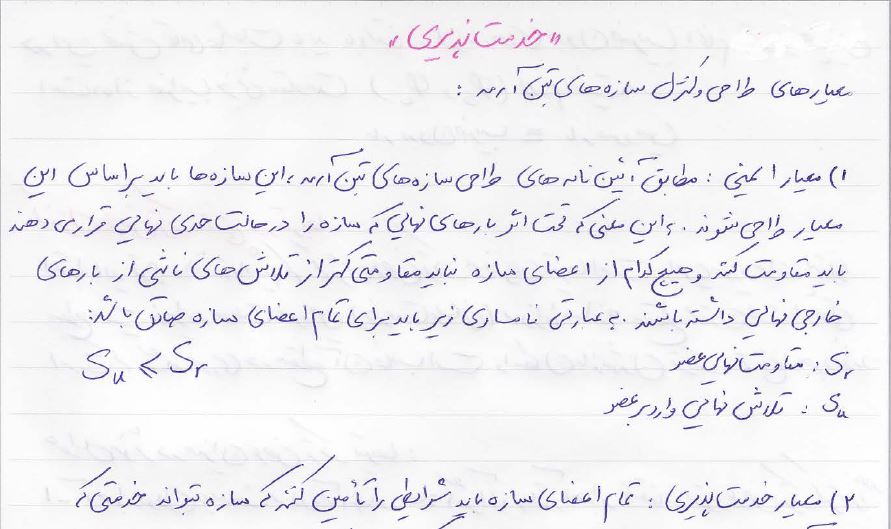 "خدمت پذیری"
معیارهای طراحی و کنترل سازه های بتن آرمه :
۱) معیار ایمنی : مطابق آئین نامه های طراحی سازه های بتن آرمه ، این سازه ها باید براساس این
معیار طراحی شوند . به این معنی که تحت اثر بارهای نهایی که سازه را در حالت حدی نهایی قرار می دهند
باید مقاومت کنند و هیچ کدام از اعضای سازه نباید مقاومتی کمتر از تلاش های ناشی از بارهای
خارجی نهایی داشته باشند . به عبارتی نامساوی زیر باید برای تمام اعضای سازه صادق باشد:
Sᵣ : مقاومت نهایی عضو
Sᵤ ⩽ Sᵣ
Sᵤ : تلاش نهایی وارد بر عضو
۲) معیار خدمت پذیری : تمام اعضای سازه باید شرایطی را تأمین کنند که سازه بتواند خدمتی که